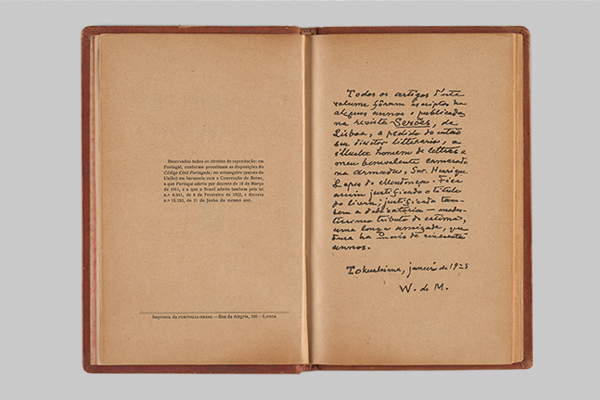 Reservados todos os direitos de reprodução: em
Portugal, conforme preceituam as disposições do
Código Civil Português; no estrangeiro (países da
União) em harmonia com a Convenção de Berne,
a que Portugal aderiu por decreto de 18 de Março
de 1911, e a que o Brasil aderiu também pela lei
n.º 4.541, de 6 de Fevereiro de 1922, e decreto
n.º 15.530, de 21 de Junho do mesmo ano.
Imprensa da PORTUGAL-BRASIL — Rua da Alegria, 100 — LISBOA
Todos os artigos d'este
volume fôram escriptos ha
alguns annos e publicados
na revista Serões, de
Lisboa, a pedido do então
seu director litterario, o
illustre homem de lettras e
meu benevolente camarada
na armada, Snr. Henrique
Lopes de Mendonça. Fica
assim justificado o titulo
do livro; justificada tam-
bem a dedicatória — modes-
tissimo tributo de estima,
uma longa amizade, que
dura ha mais de cincoenta
annos.
Tokushima, janeiro de 1925
W. de M.